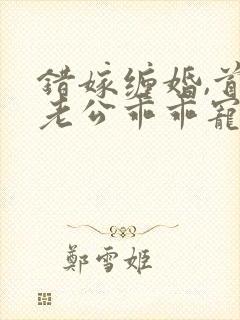 错嫁缠婚,首
老公乖乖寵
鄭雪姬